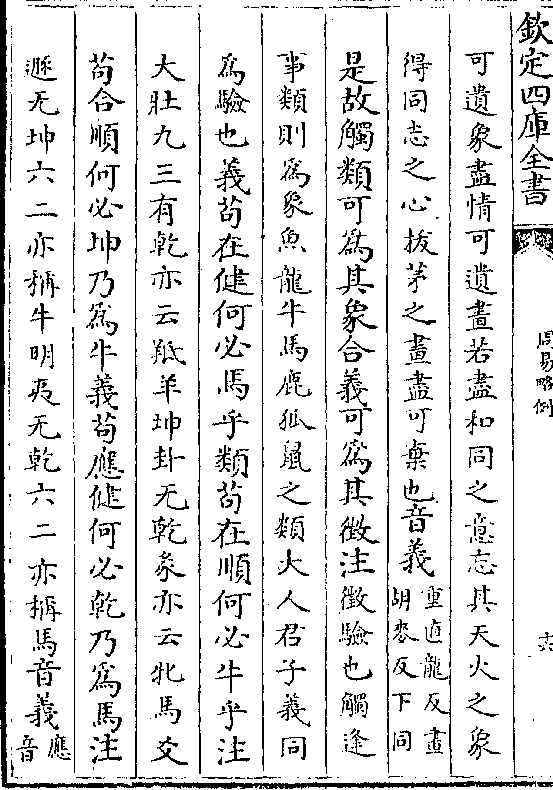 欽定四庫全書
周易略例
十六
可遺象盡情可遺畫若盡和同之意忘其天火之象
得同志之心拔茅之畫盡可棄也音義重直龍反畫胡麥反下同
是故觸類可為其象合義可為其徵注徵驗也觸逢
事類則為象魚龍牛馬鹿狐鼠之類大人君子義同
為驗也義苟在健何必馬乎類苟在順何必牛乎注
大壯九三有乾亦云羝羊坤卦无乾象亦云牝馬爻
苟合順何必坤乃為牛義苟應健何必乾乃為馬注
遯无坤六二亦稱牛明夷无乾六二亦稱馬音義應音